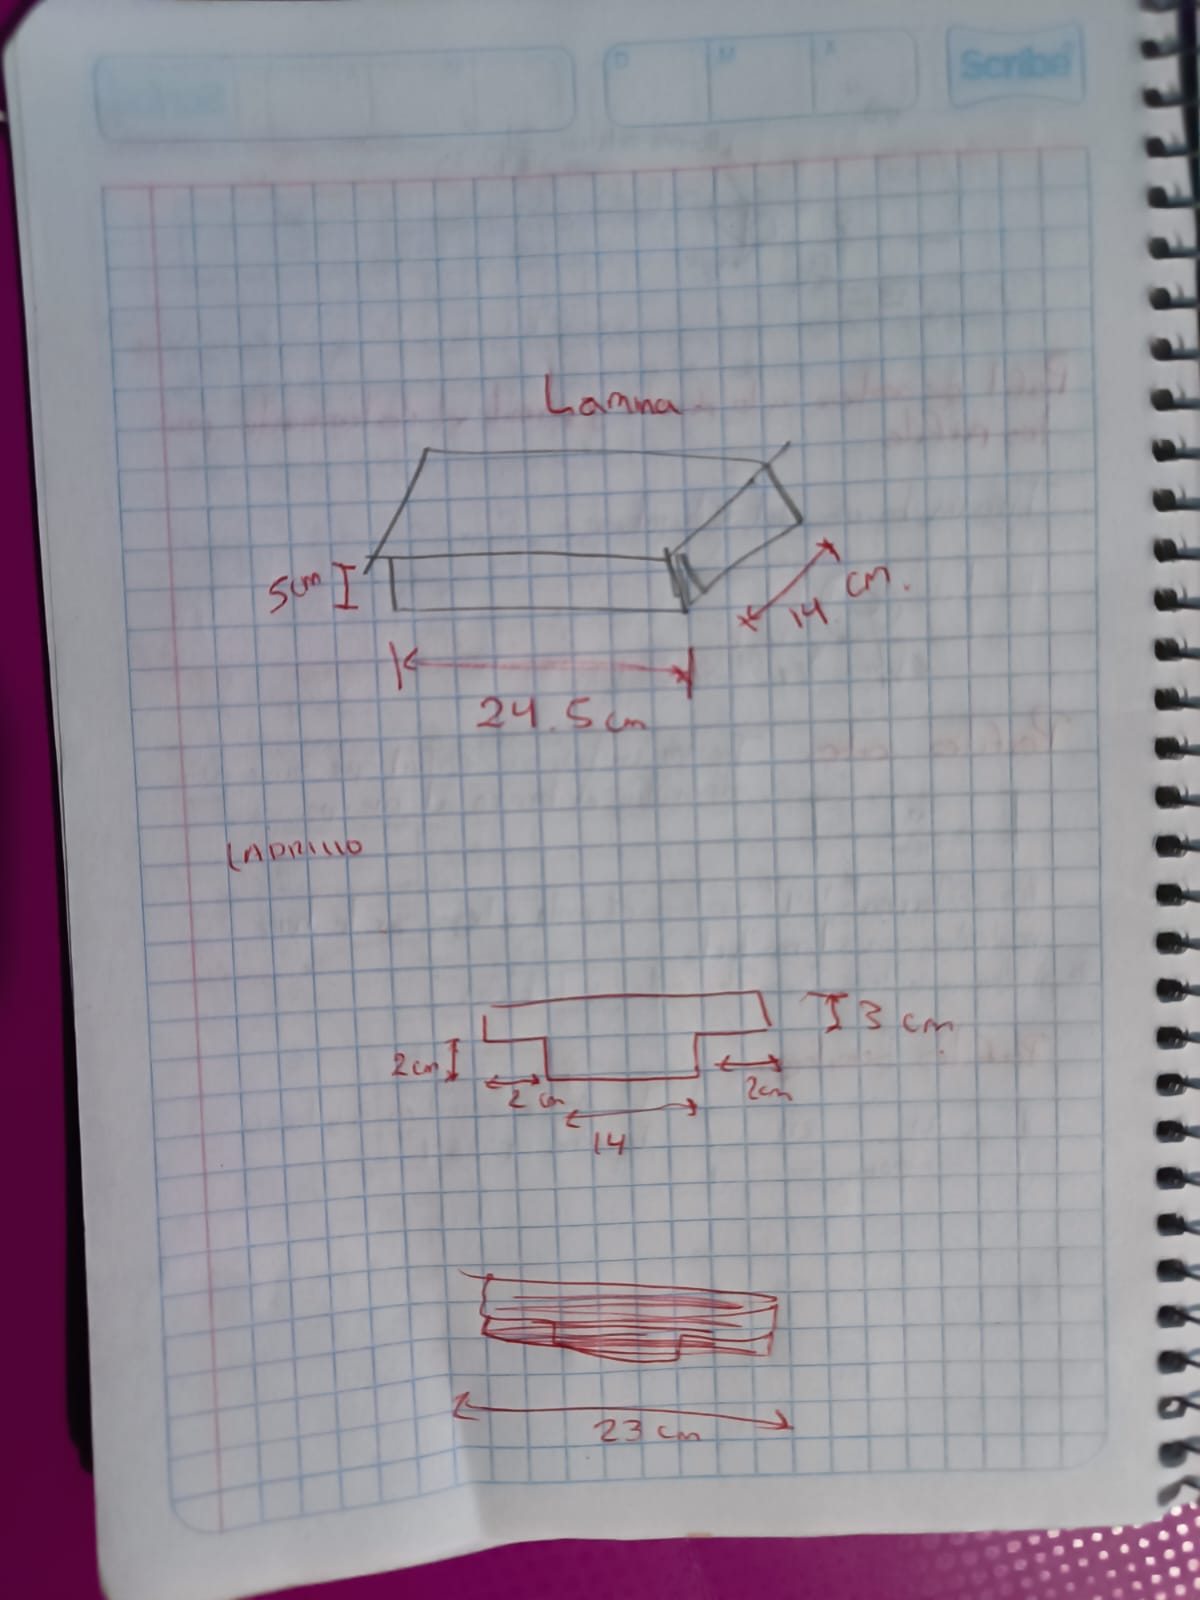 D M A Scribe
Lamna
5cm
14 cm.
24.5cm
LADRILLO
3 cm
2cm
2 cm
2cm
14
23 cm